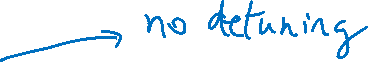 no detuning